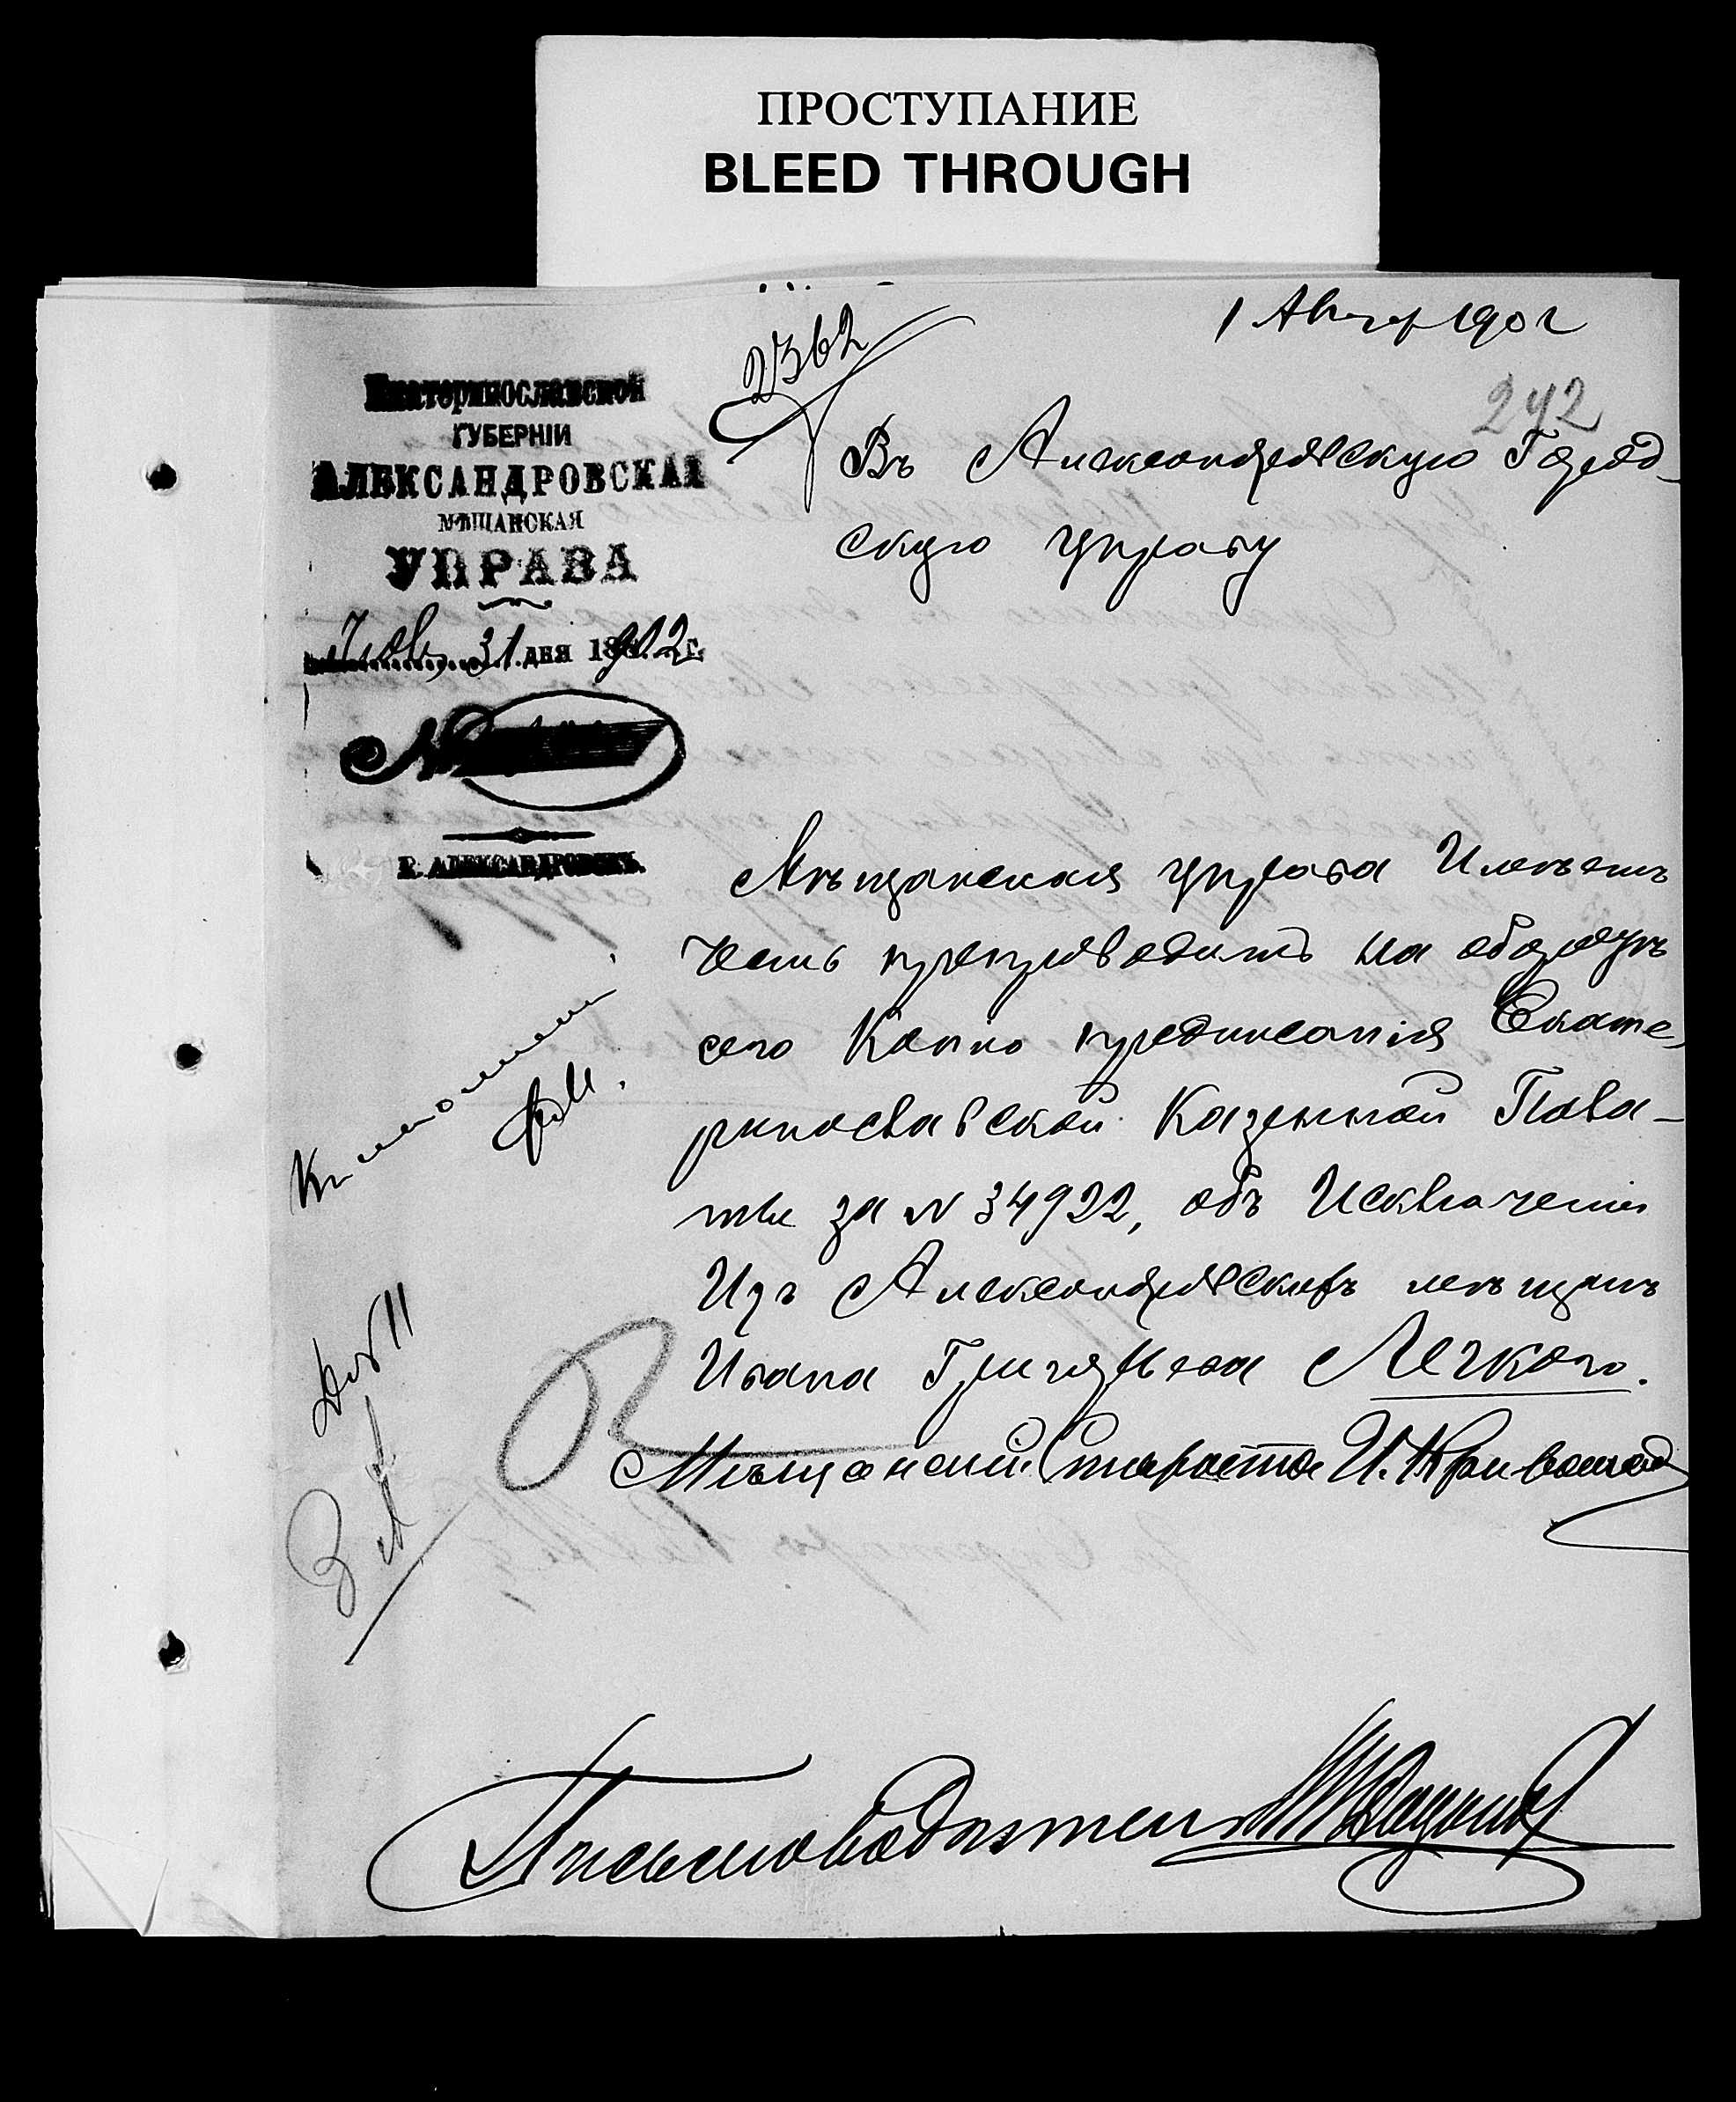 ПРОСТУПАНИЕ
BLEED THROUGH
1 Авгус 1902
2362
242
Екатеринославской
ГУБЕРНІИ
АЛЕКСАНДРОВСКАЯ
МѢЩАНСКАЯ
УПРАВА
Іюля 31 дня 1902 г.
№
Г. АЛЕКСАНДРОВСКЪ.
Въ Александровскую Город-
скую управу
Мѣщанская управа Имѣетъ
честь препроводить на оборотѣ
сего Копію предписанія Екате-
ринославской Казенной Пала-
ты за № 34922, объ Исключеніи
Изъ Александровскихъ мѣщанъ
Ивана Григорьева Легкого.
Мѣщанскій Староста И.
Письмоводитель